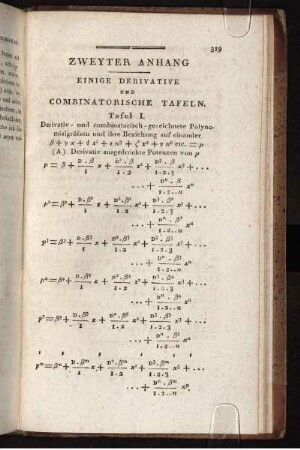 319
ZWEYTER ANHANG
EINIGE DERIVATIVE
UND
COMBINATORISCHE TAFELN.
Tafel I.
Derivativ- und combinatorisch-gezeichnete Polyno-
mialgrößen und ihre Beziehung auf einander
β + γ x + δ x² + ε x³ + ζ x⁴ + η x⁵ etc. = p
(A) Derivativ ausgedrückte Potenzen von p
p = β + D.β/1 x + D².β/1.2 x² + D³.β/1.2.3 x³ + ...
... + Dⁿ.β/1.2..n xⁿ
p² = β² + D.β²/1 x + D².β²/1.2 x² + D³.β²/1.2.3 x³ + ...
... + Dⁿ.β²/1.2..n xⁿ
p³ = β³ + D.β³/1 x + D².β³/1.2 x² + D³.β³/1.2.3 x³ + ...
... + Dⁿ.β³/1.2..n xⁿ
p⁴ = β⁴ + D.β⁴/1 x + D².β⁴/1.2 x² + D³.β⁴/1.2.3 x³ + ...
... + Dⁿ.β⁴/1.2..n xⁿ
p⁵ = β⁵ + D.β⁵/1 x + D².β⁵/1.2 x² + D³.β⁵/1.2.3 x³ + ...
... + Dⁿ.β⁵/1.2..n xⁿ
pᵐ = βᵐ + D.βᵐ/1 x + D².βᵐ/1.2 x² + D³.βᵐ/1.2.3 x³ + ...
... + Dⁿ.βᵐ/1.2..n xⁿ